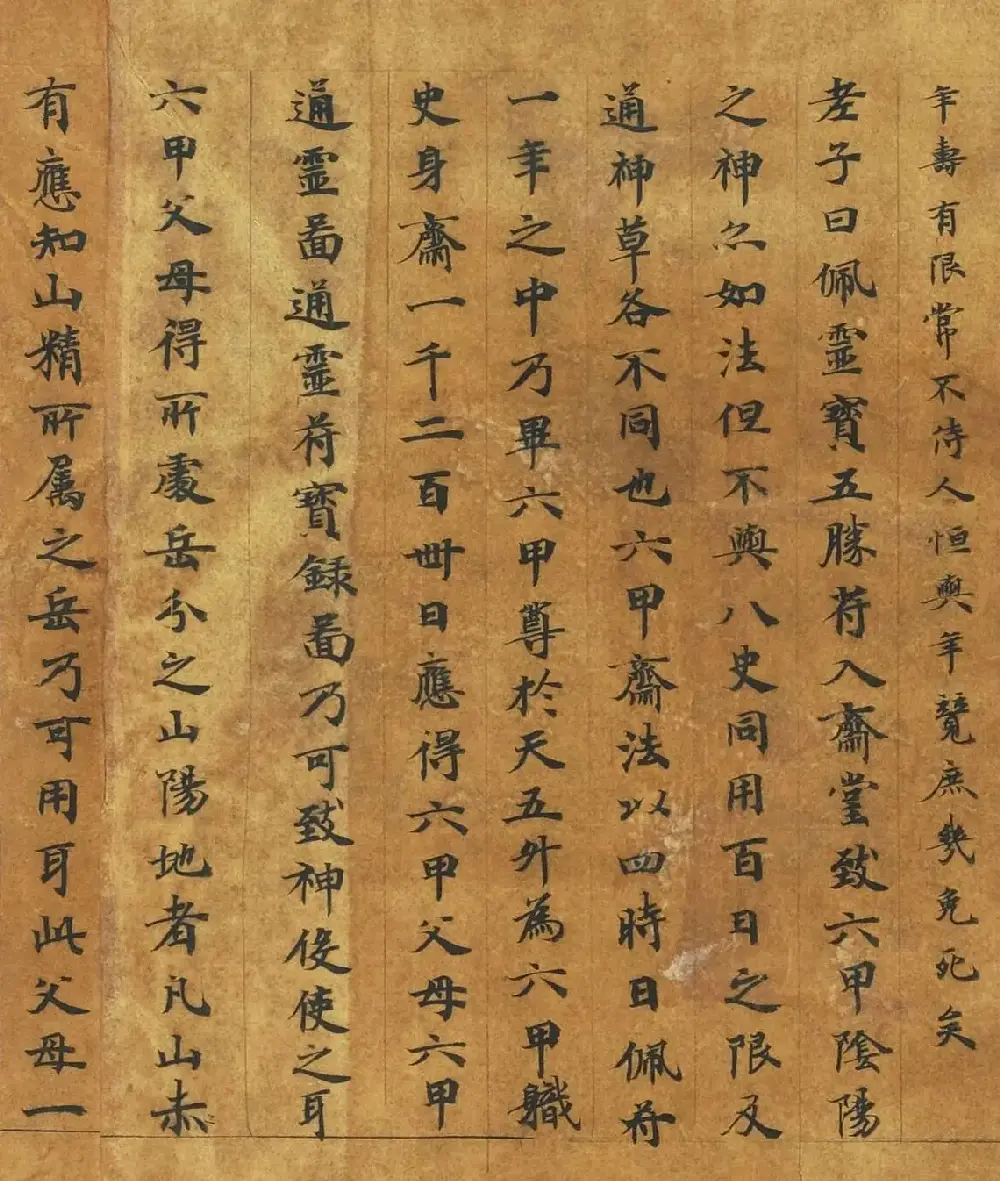 年壽有限常不待人恒與年競庶幾免死矣
老子曰佩靈寶五勝符入齋堂致六甲陰陽
之神亦如法但不與八史同用百日之限及
通神草各不同也六甲齋法以四時日佩符
一年之中乃畢六甲尊於天五外為六甲職
史身齋一千二百卌日應得六甲父母六甲
通靈圖通靈符寶錄圖乃可致神役使之耳
六甲父母得所處岳分之山陽地者凡山亦
有應知山精所属之岳乃可用耳此父母一